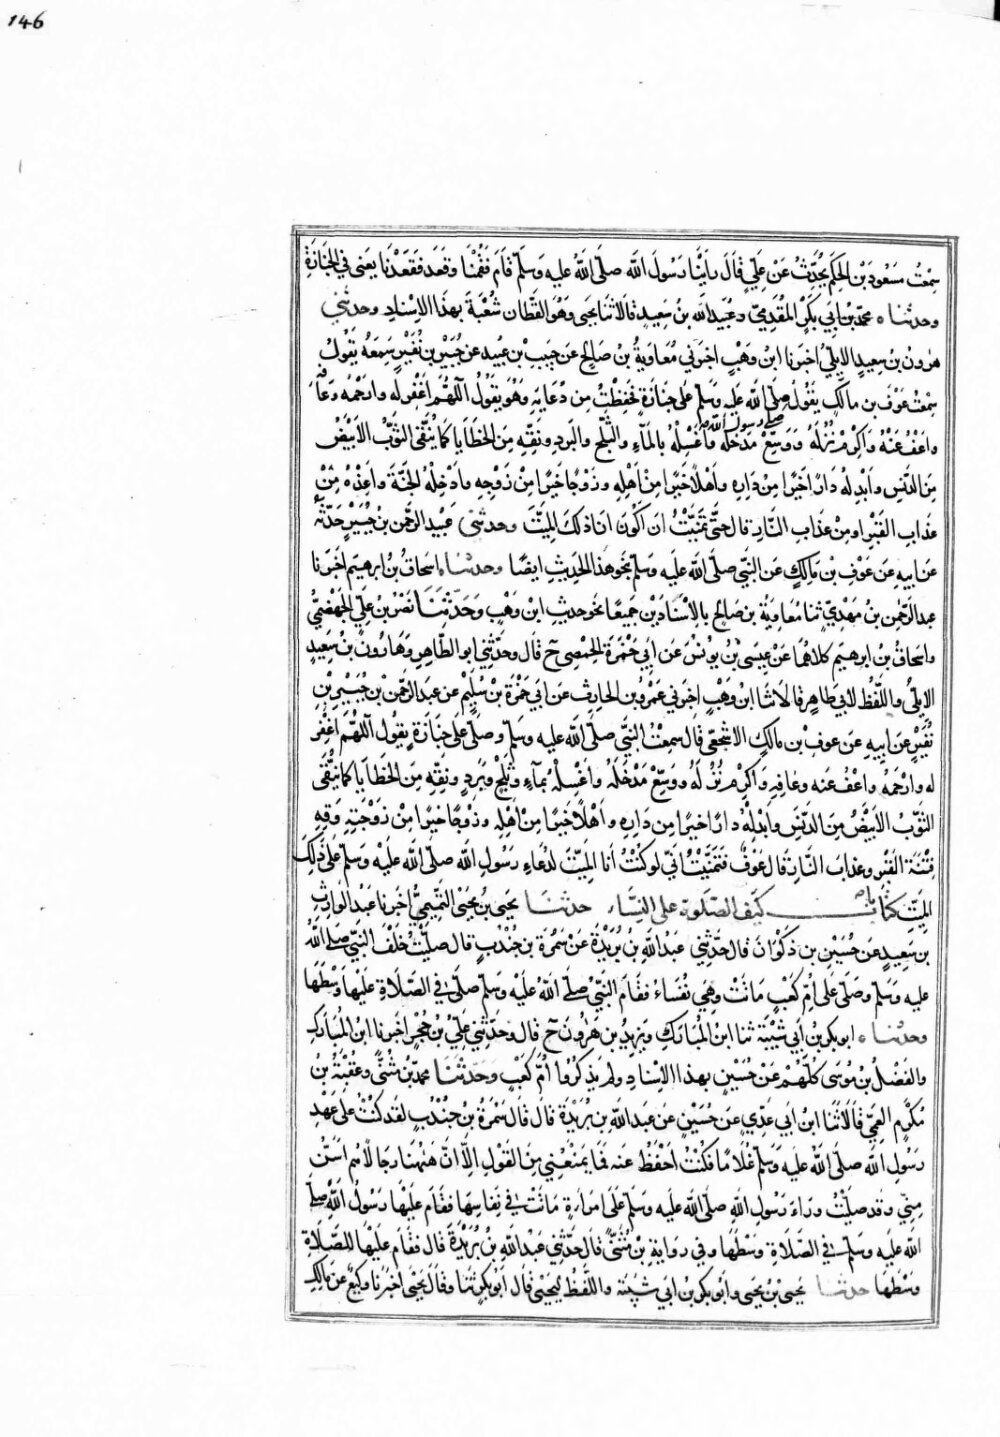 146
سمعت مسعود بن الحكم يحدث عن علي قال رأينا رسول الله صلى الله عليه وسلم قام فقمنا وقعد فقعدنا يعنى في الجنازة
وحدثناه محمد بن ابي بكر المقدمي وعبيد الله بن سعيد قالا ثنا يحيى وهو القطان شعبة بهذا الاسناد وحدثني
هرون بن سعيد الايلي اخبرنا ابن وهب اخبرني معاوية بن صالح عن حبيب بن عبيد عن جبير بن نفير سمعه يقول
سمعت عوف بن مالك يقول صلى الله عليه وسلم على جنازة فحفظت من دعايه وهو يقول اللهم اغفر له وارحمه وعافه
صلى رسول الله
واعف عنه واكرم نزله ووسع مدخله واغسله بالماء والثلج والبرد ونقه من الخطايا كما ينقى الثوب الابيض
من الدنس وابدله دارا خيرا من داره واهلا خيرا من اهله وزوجا خيرا من زوجه وادخله الجنة واعذه من
عذاب القبر او من عذاب النار قال حتى تمنيت ان اكون انا ذلك الميت وحدثني عبيد الرحمن بن جبير حدثه
عن ابيه عن عوف بن مالك عن النبي صلى الله عليه وسلم بنحو هذا الحديث ايضا وحدثناه اسحاق بن ابرهيم اخبرنا
عبد الرحمن بن مهدي ثنا معاوية بن صالح بالاسنادين جميعا نحو حديث ابن وهب وحدثنا نصر بن علي الجهضمي
واسحاق بن ابرهيم كلاهما عن عيسى بن يونس عن ابي حمزة الحمصي ح قال وحدثني ابو الطاهر وهارون بن سعيد
الايلي واللفظ لابي طاهر قالا ثنا ابن وهب اخبرني عمرو بن الحارث عن ابي حمزة بن سليم عن عبد الرحمن بن جبير بن
نفير عن ابيه عن عوف بن مالك الاشجعي قال سمعت النبي صلى الله عليه وسلم وصلى على جنازة يقول اللهم اغفر
له وارحمه واعف عنه وعافه واكرم نزله ووسع مدخله واغسله بماء وثلج وبرد ونقه من الخطايا كما ينقى
الثوب الابيض من الدنس وابدله دارا خيرا من داره واهلا خيرا من اهله وزوجا خيرا من زوجته وقه
فتنة القبر وعذاب النار قال عوف فتمنيت اني لو كنت انا الميت لدعاء رسول الله صلى الله عليه وسلم على ذلك
الميت كيف الصلوة على النساء حدثنا يحيى بن يحيى التميمي اخبرنا عبد الوارث
بن سعيد عن حسين بن ذكوان قال حدثني عبد الله بن بريدة عن سمرة بن جندب قال صليت خلف النبي صلى الله
عليه وسلم وصلى على ام كعب ماتت وهي نفساء فقام النبي صلى الله عليه وسلم صلى في الصلاة عليها وسطها
وحدثناه ابو بكر بن ابي شيبة ثنا ابن المبارك ويزيد بن هرون ح قال وحدثني علي بن حجر اخبرنا ابن المبارك
والفضل بن موسى كلهم عن حسين بهذا الاسناد ولم يذكروا ام كعب وحدثنا محمد بن مثنى وعقبة بن
مكرم العمي قالا ثنا ابن ابي عدي عن حسين عن عبد الله بن بريدة قال قال سمرة بن جندب لقد كنت على عهد
رسول الله صلى الله عليه وسلم غلاما فكنت احفظ عنه فما يمنعني من القول الا ان ههنا رجالا هم اسن
مني وقد صليت وراء رسول الله صلى الله عليه وسلم على امراة ماتت في نفاسها فقام عليها رسول الله صلى
الله عليه وسلم في الصلاة وسطها وفي رواية بن مثنى قال حدثني عبد الله بن بريدة قال فقام عليها للصلاة
وسطها حدثنا يحيى بن يحيى وابو بكر بن ابي شيبة واللفظ ليحيى قال ابو بكر ثنا وقال يحيى اخبرنا وكيع عن مالك